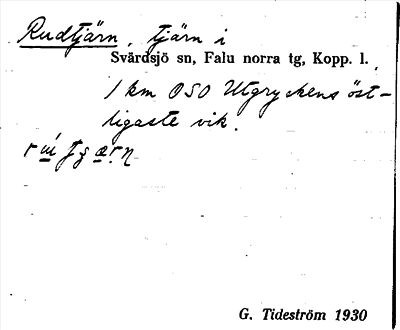 Rudtjärn, tjärn i
Svärdsjö sn, Falu norra tg, Kopp. l.
1 km OSO Utgryckens öst-
ligaste vik.
G. Tideström 1930